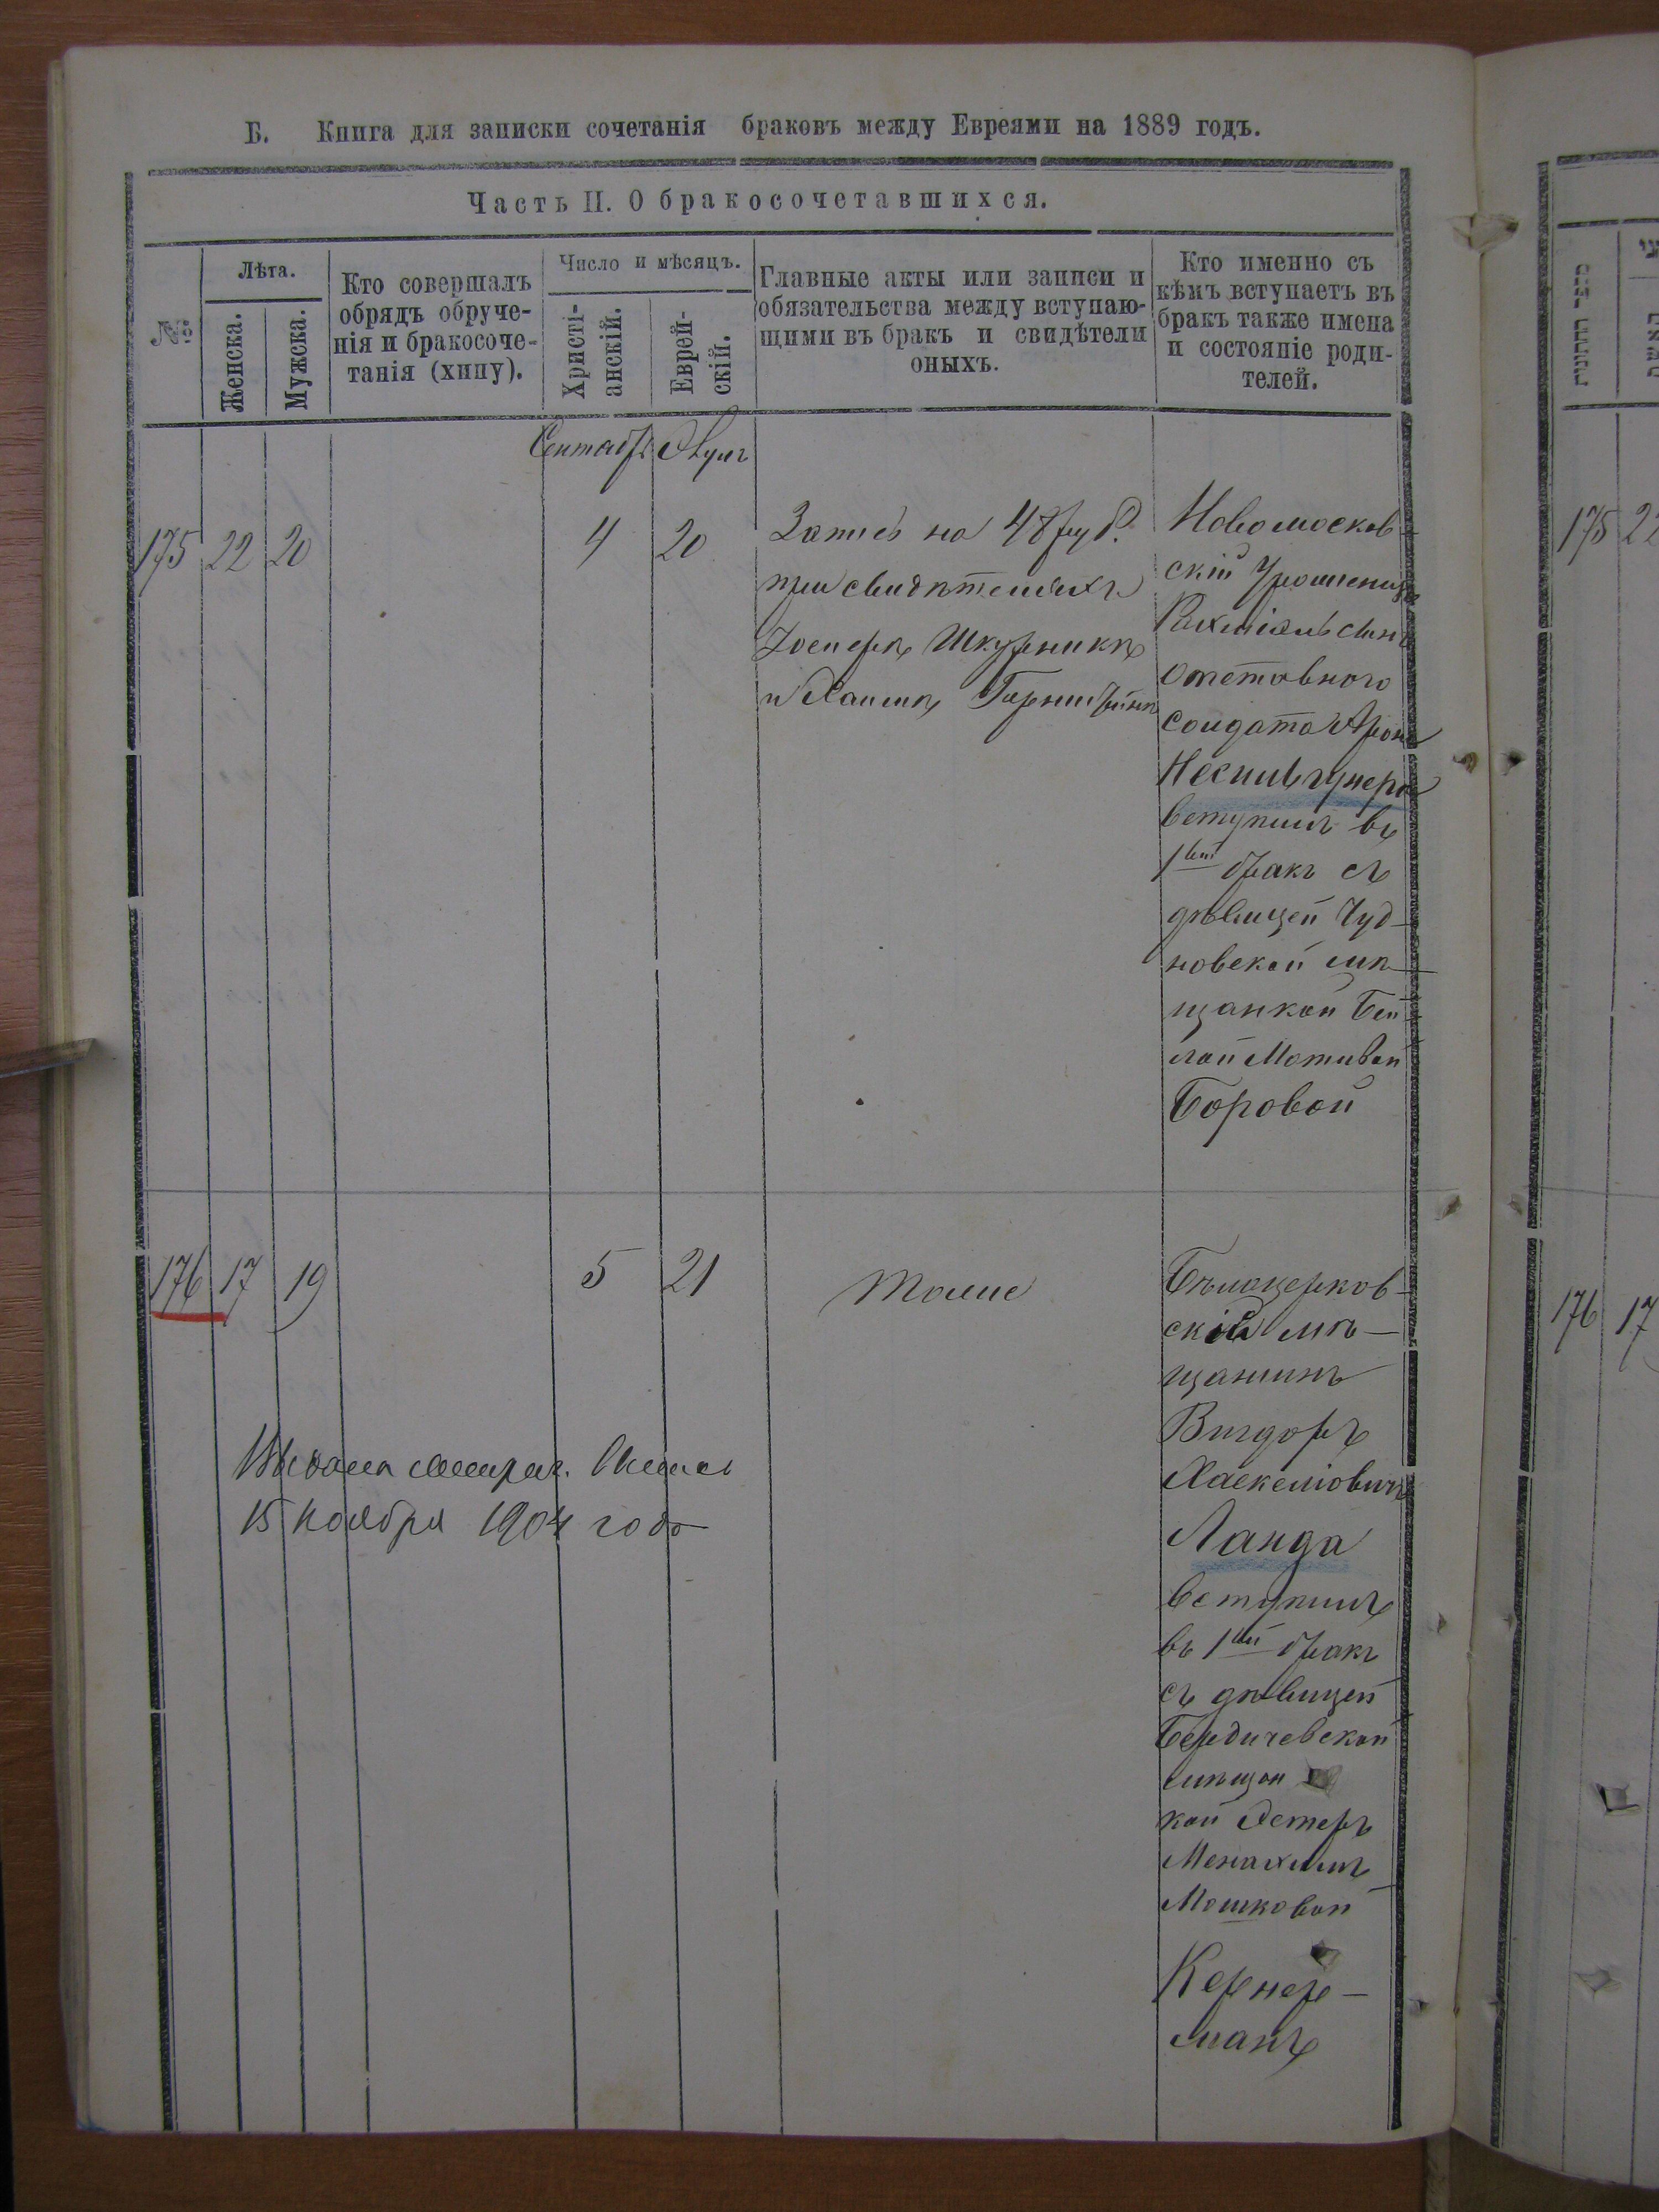 Б. Книга для записки сочетанія браковъ между Евреями на 1889 годъ.
Часть II. О бракосочетавшихся.
№
Лѣта.
Женска.
Мужска.
Кто совершалъ
обрядъ обруче-
нія и бракосоче-
танія (хипу).
Число и мѣсяцъ.
Христі-
анскій.
Еврей-
скій.
Главные акты или записи и
обязательства между вступаю-
щими въ бракъ и свидѣтели
оныхъ.
Кто именно съ
кѣмъ вступаетъ въ
бракъ также имена
и состояніе роди-
телей.
Сентябр. Элулъ
175 22 20 4 20
Запись на 48 руб.
при свидѣтеляхъ
Іосифѣ Шкурникѣ
и Хаимѣ
Новомосков-
скій
сынъ
отставного
солдата Арона
вступилъ въ
1вый бракъ съ
дѣвицей Чуд-
новской мѣ-
щанкой Бей-
лой
Боровой
176 17 19 5 21
тоже
Бѣлоцерков-
скій мѣ-
щанинъ
Вигдоръ
Хаскеліовичъ
Ланда
вступилъ
въ 1вый бракъ
съ дѣвицей
Бердичевской
мѣщан
кой Эстеръ
Менахимъ
Мошковой
Кернер-
манъ
Выдана метрич.
15 ноября 1904 года
175 22
176 17